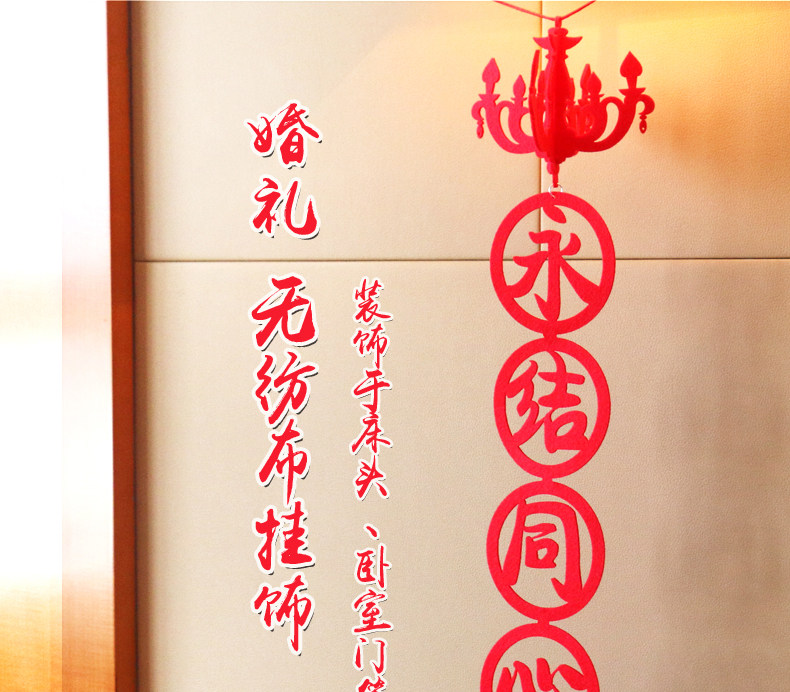 婚礼
无纺布挂饰
装饰于床头、卧室门
永结同